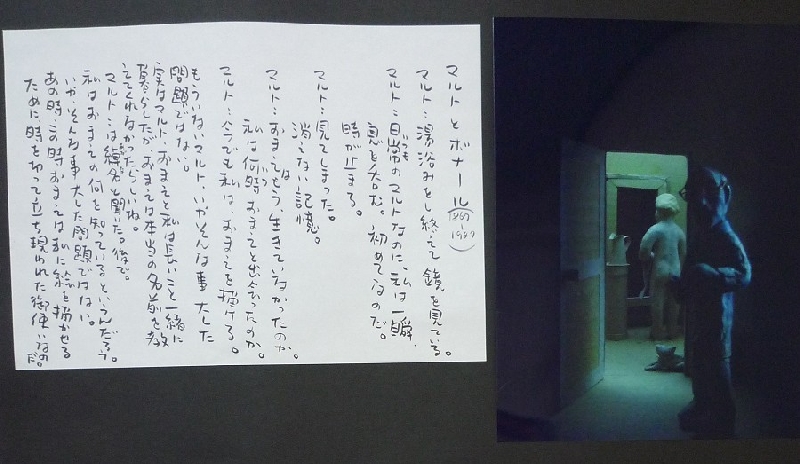 マルトとボナール(1867 1947)
マルト…湯浴みを終えて鏡を見ている。
マルト…日常のマルトなのに私は一瞬、
息を呑む。初めてなのだ。
時が止まる。
マルト…見てしまった。
消えない記憶。
マルト…おまえはもう、生きていなかったのか。
私は何時おまえと出会ったのか。
マルト…今でも私は、おまえを描ける。
もういないマルト、いやそんな事大した
問題ではない。
実はマルト、おまえと私は長いこと一緒に
暮らしたが、おまえは本当の名前を教
えてくれなかったらしいね。
マルト…は偽名と聞いた。後で。
私はおまえの何を知っているというんだろう。
いや、そんな事大した問題ではない。
あの時、この時おまえは私に絵を描かせる
ために時を切って立ち現われた御使いなのだ。